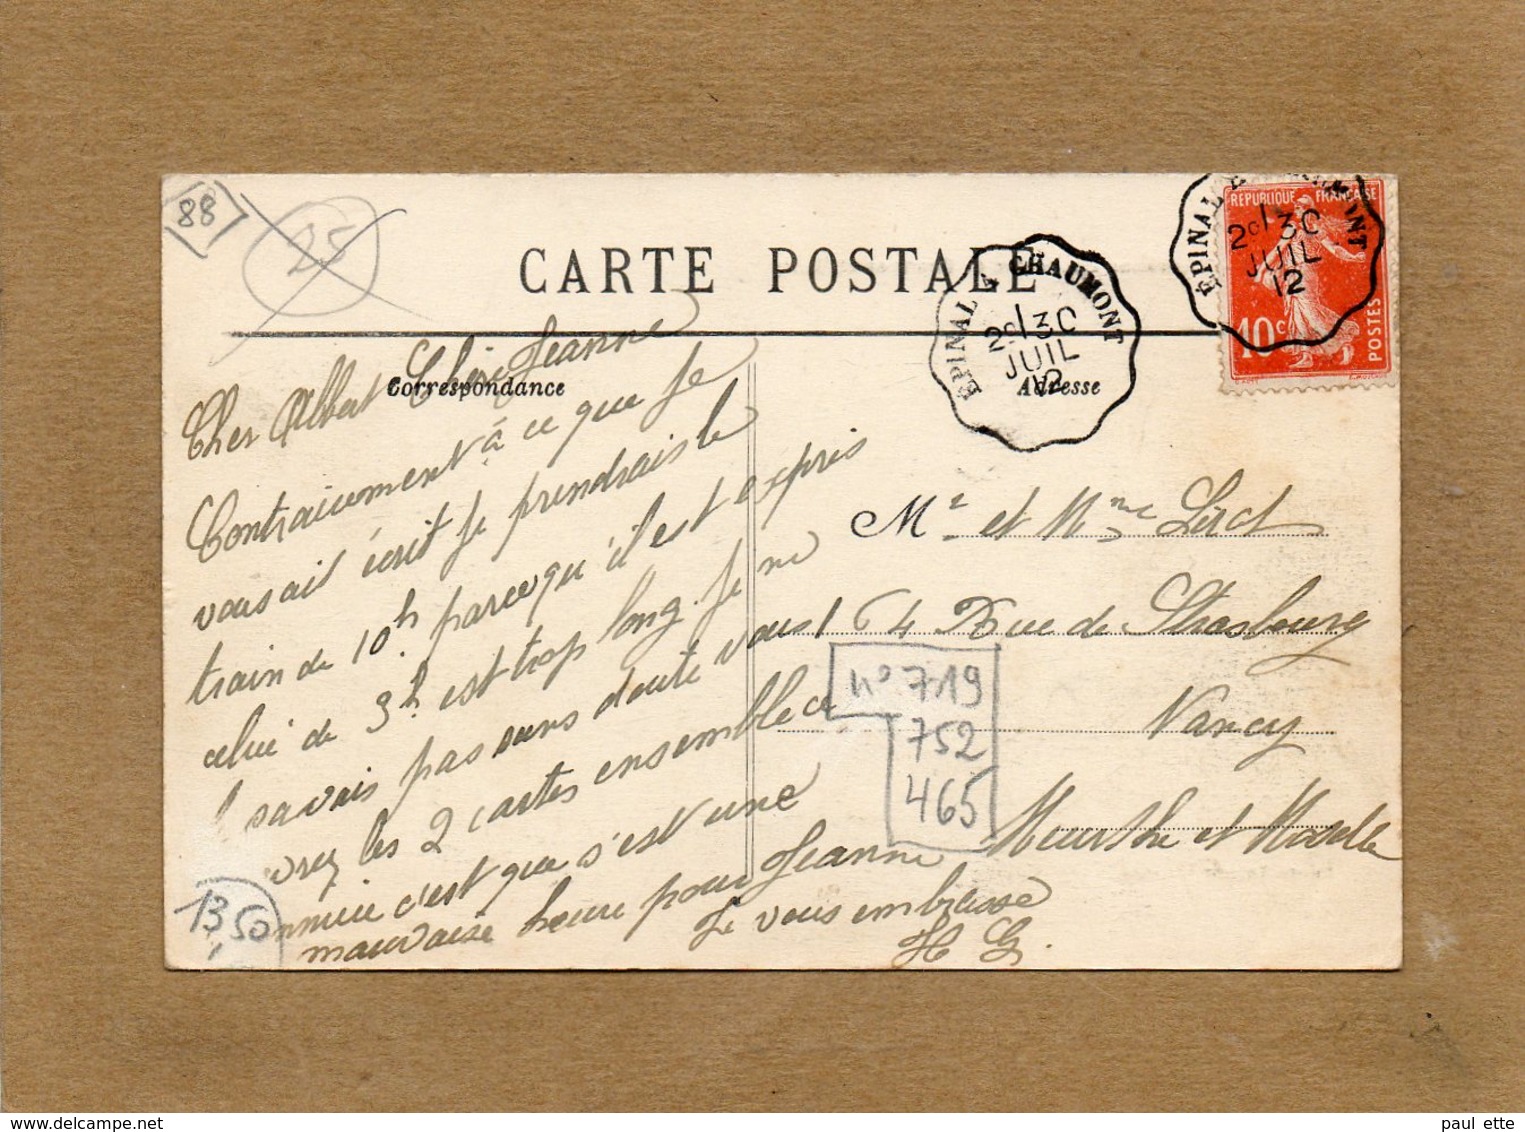 88
25
CARTE POSTALE
Correspondance
Adresse
EPINAL A CHAUMONT
2° 30
JUIL
12
ÉPINAL
2° 30
JUIL
12
REPUBLIQUE FRANÇAISE
10c
POSTES
Cher Albert Chère Jeanne
Contrairement à ce que je
vous ait écrit je prendrais le
train de 10h parcequ'il est expris
celui de 3h est trop long. Je ne
savais pas sans doute vous
les 2 cartes ensemble ce
c'est que s'est une
mauvaise heure pour Jeanne
Je vous embrasse
H G.
Mr et Mme
164 Rue de Strasbourg
Nancy
Meurthe et Moselle
n° 719
752
465
1350
paul ette
delcampe.net